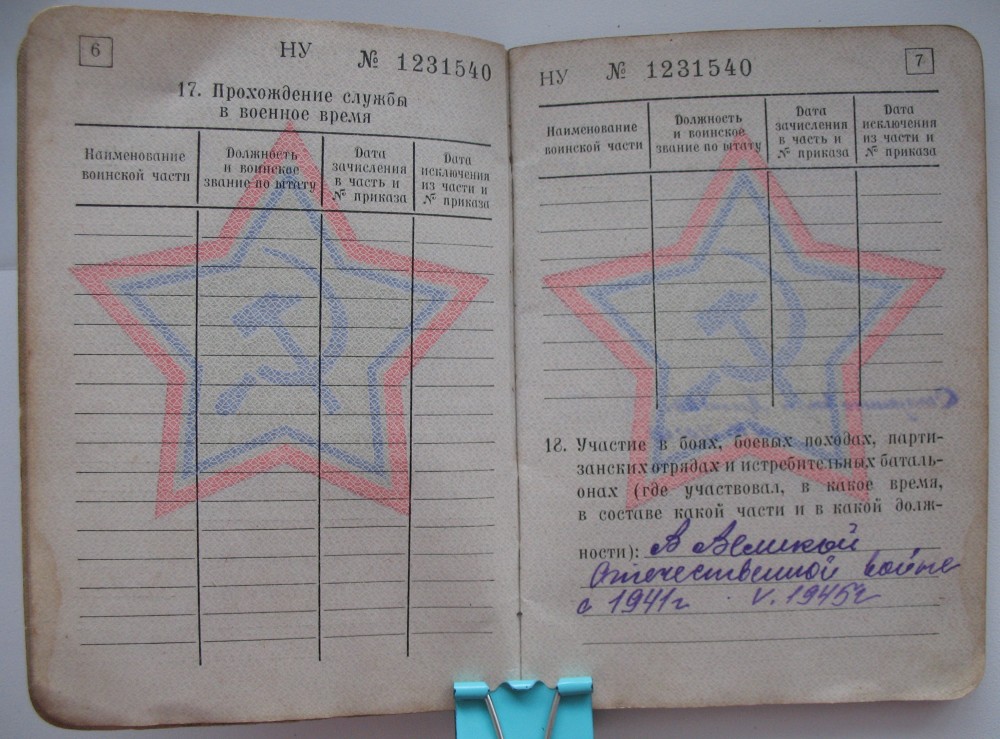 6
НУ № 1231540
17. Прохождение службы
в военное время
Наименование
воинской части
Должность
и воинское
звание по штату
Дата
зачисления
в часть и
№ приказа
Дата
исключения
из части и
№ приказа
НУ № 1231540
7
Наименование
воинской части
Должность
и воинское
звание по штату
Дата
зачисления
в часть и
№ приказа
Дата
исключения
из части и
№ приказа
18. Участие в боях, боевых походах, парти-
занских отрядах и истребительных баталь-
онах (где участвовал, в какое время,
в составе какой части и в какой долж-
ности): В Великой
Отечественной войне
с 1941г V. 1945г